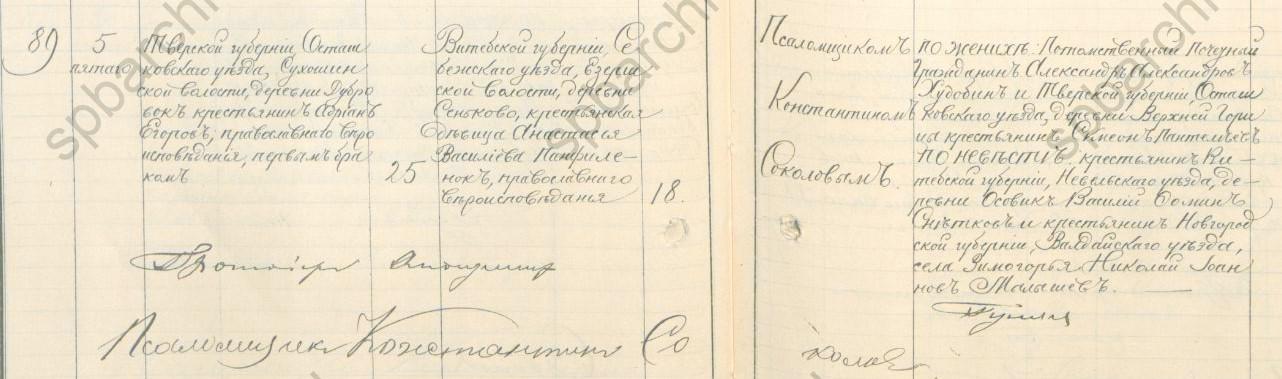 89
5
пятаго
Тверской губерніи, Осташ
ковскаго уѣзда, Сухошин
ской волости, деревни Дубро
вокъ крестьянинъ Адріанъ
Егоровъ, православнаго вѣро
исповѣданья, первымъ бра
комъ
25
Витебской губерніи, Се
бежскаго уѣзда, Езерій
ской волости, деревни
Сеньково, крестьянская
дѣвица Анастасья
Василіева Панфиле-
нокъ, православнаго
вѣроисповѣданья
18.
Псаломщикомъ
Константиномъ
Соколовымъ.
по женихѣ: Потомственный Почетный
Гражданинъ Александръ Александровъ
Худобинъ и Тверской губерніи, Осташ
ковскаго уѣзда, деревни Верхней Гори
цы крестьянинъ Симеонъ Пантелѣевъ
по невѣстѣ: крестьянинъ Ви-
тебской губерніи, Невельскаго уѣзда, де-
ревни Осовикъ Василій Ѳоминъ
Снѣтковъ и крестьянинъ Новгород
ской губерніи, Валдайскаго уѣзда,
села Зимогорья Николай Іоан
новъ Малышевъ.
Протоіерей
Псаломщик Константин Со
колов
spbarchives